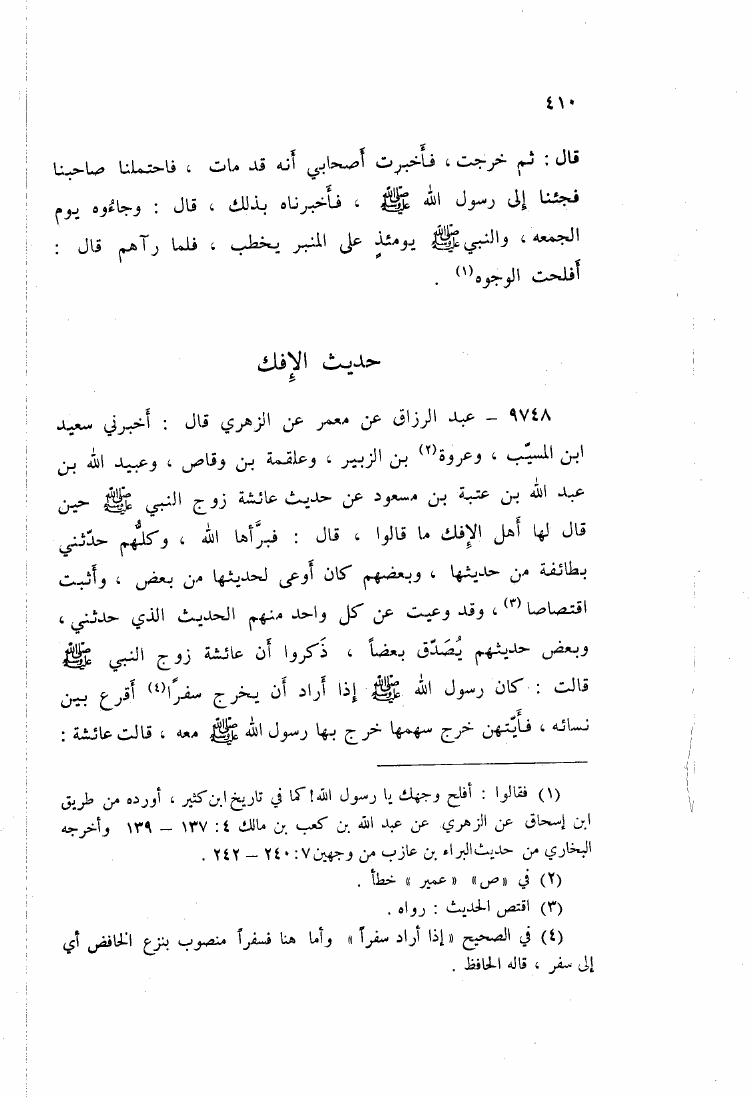 ٤١٠
قال : ثم خرجت ، فأخبرت أصحابي أنه قد مات ، فاحتملنا صاحبنا
فجئنا إلى رسول الله ﷺ ، فأخبرناه بذلك ، قال : وجاءُوه يوم
الجمعه ، والنبي ﷺ يومئذٍ على المنبر يخطب ، فلما رآهم قال :
أفلحت الوجوه(١) .
حديث الإفك
٩٧٤٨ – عبد الرزاق عن معمر عن الزهري قال : أخبرني سعيد
ابن المسيّب ، وعروة(٢) بن الزبير ، وعلقمة بن وقاص ، وعبيد الله بن
عبد الله بن عتبة بن مسعود عن حديث عائشة زوج النبي ﷺ حين
قال لها أهل الإفك ما قالوا ، قال : فبرَّأها الله ، وكلُّهم حدّثني
بطائفة من حديثها ، وبعضهم كان أوعى لحديثها من بعض ، وأثبت
اقتصاصا(٣) ، وقد وعيت عن كل واحد منهم الحديث الذي حدثني ،
وبعض حديثهم يُصَدّق بعضاً ، ذَكروا أن عائشة زوج النبي ﷺ
قالت : كان رسول الله ﷺ إذا أراد أن يخرج سفرًا(٤) أقرع بين
نسائه ، فأيّتهن خرج سهمها خرج بها رسول الله ﷺ معه ، قالت عائشة :
(١) فقالوا : أفلح وجهك يا رسول الله! كما في تاريخ ابن كثير ، أورده من طريق
ابن إسحاق عن الزهري عن عبد الله بن كعب بن مالك ٤: ١٣٧ – ١٣٩ وأخرجه
البخاري من حديث البراء بن عازب من وجهين ٧: ٢٤٠ – ٢٤٢ .
(٢) في «ص» «عمير» خطأ .
(٣) اقتص الحديث : رواه .
(٤) في الصحيح «إذا أراد سفراً» وأما هنا فسفراً منصوب بنزع الخافض أي
إلى سفر ، قاله الحافظ .